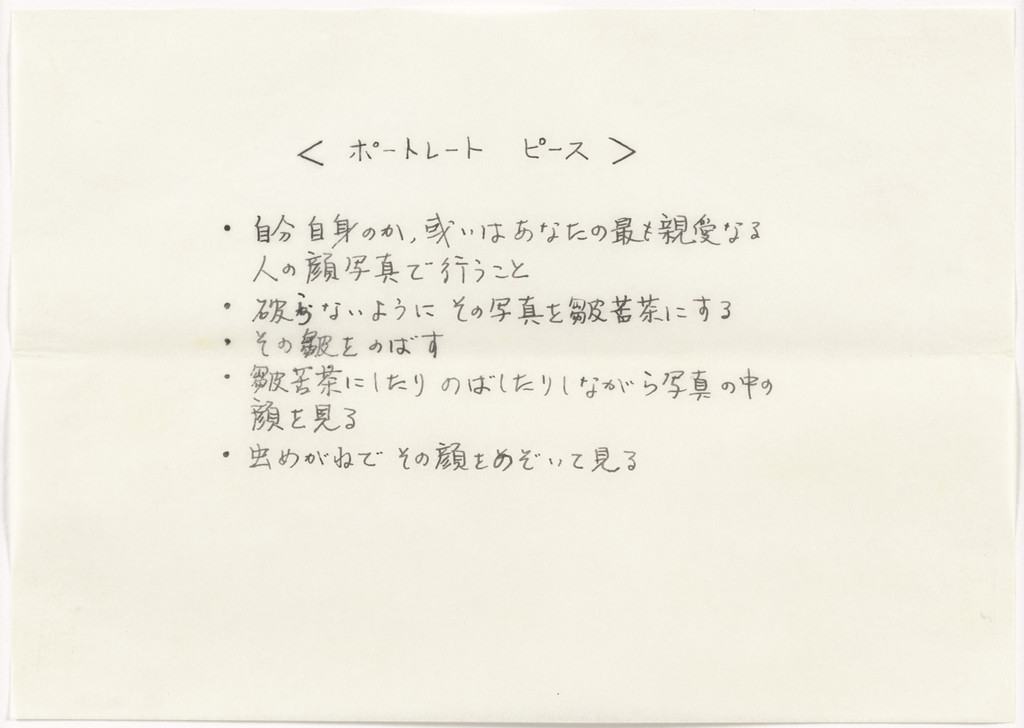 < ポートレート ピース >
・自分自身のか,或いはあなたの最も親愛なる
人の顔写真で行うこと
・破らないようにその写真を皺苦茶にする
・その皺をのばす
・皺苦茶にしたりのばしたりしながら写真の中の
顔を見る
・虫めがねでその顔をのぞいて見る